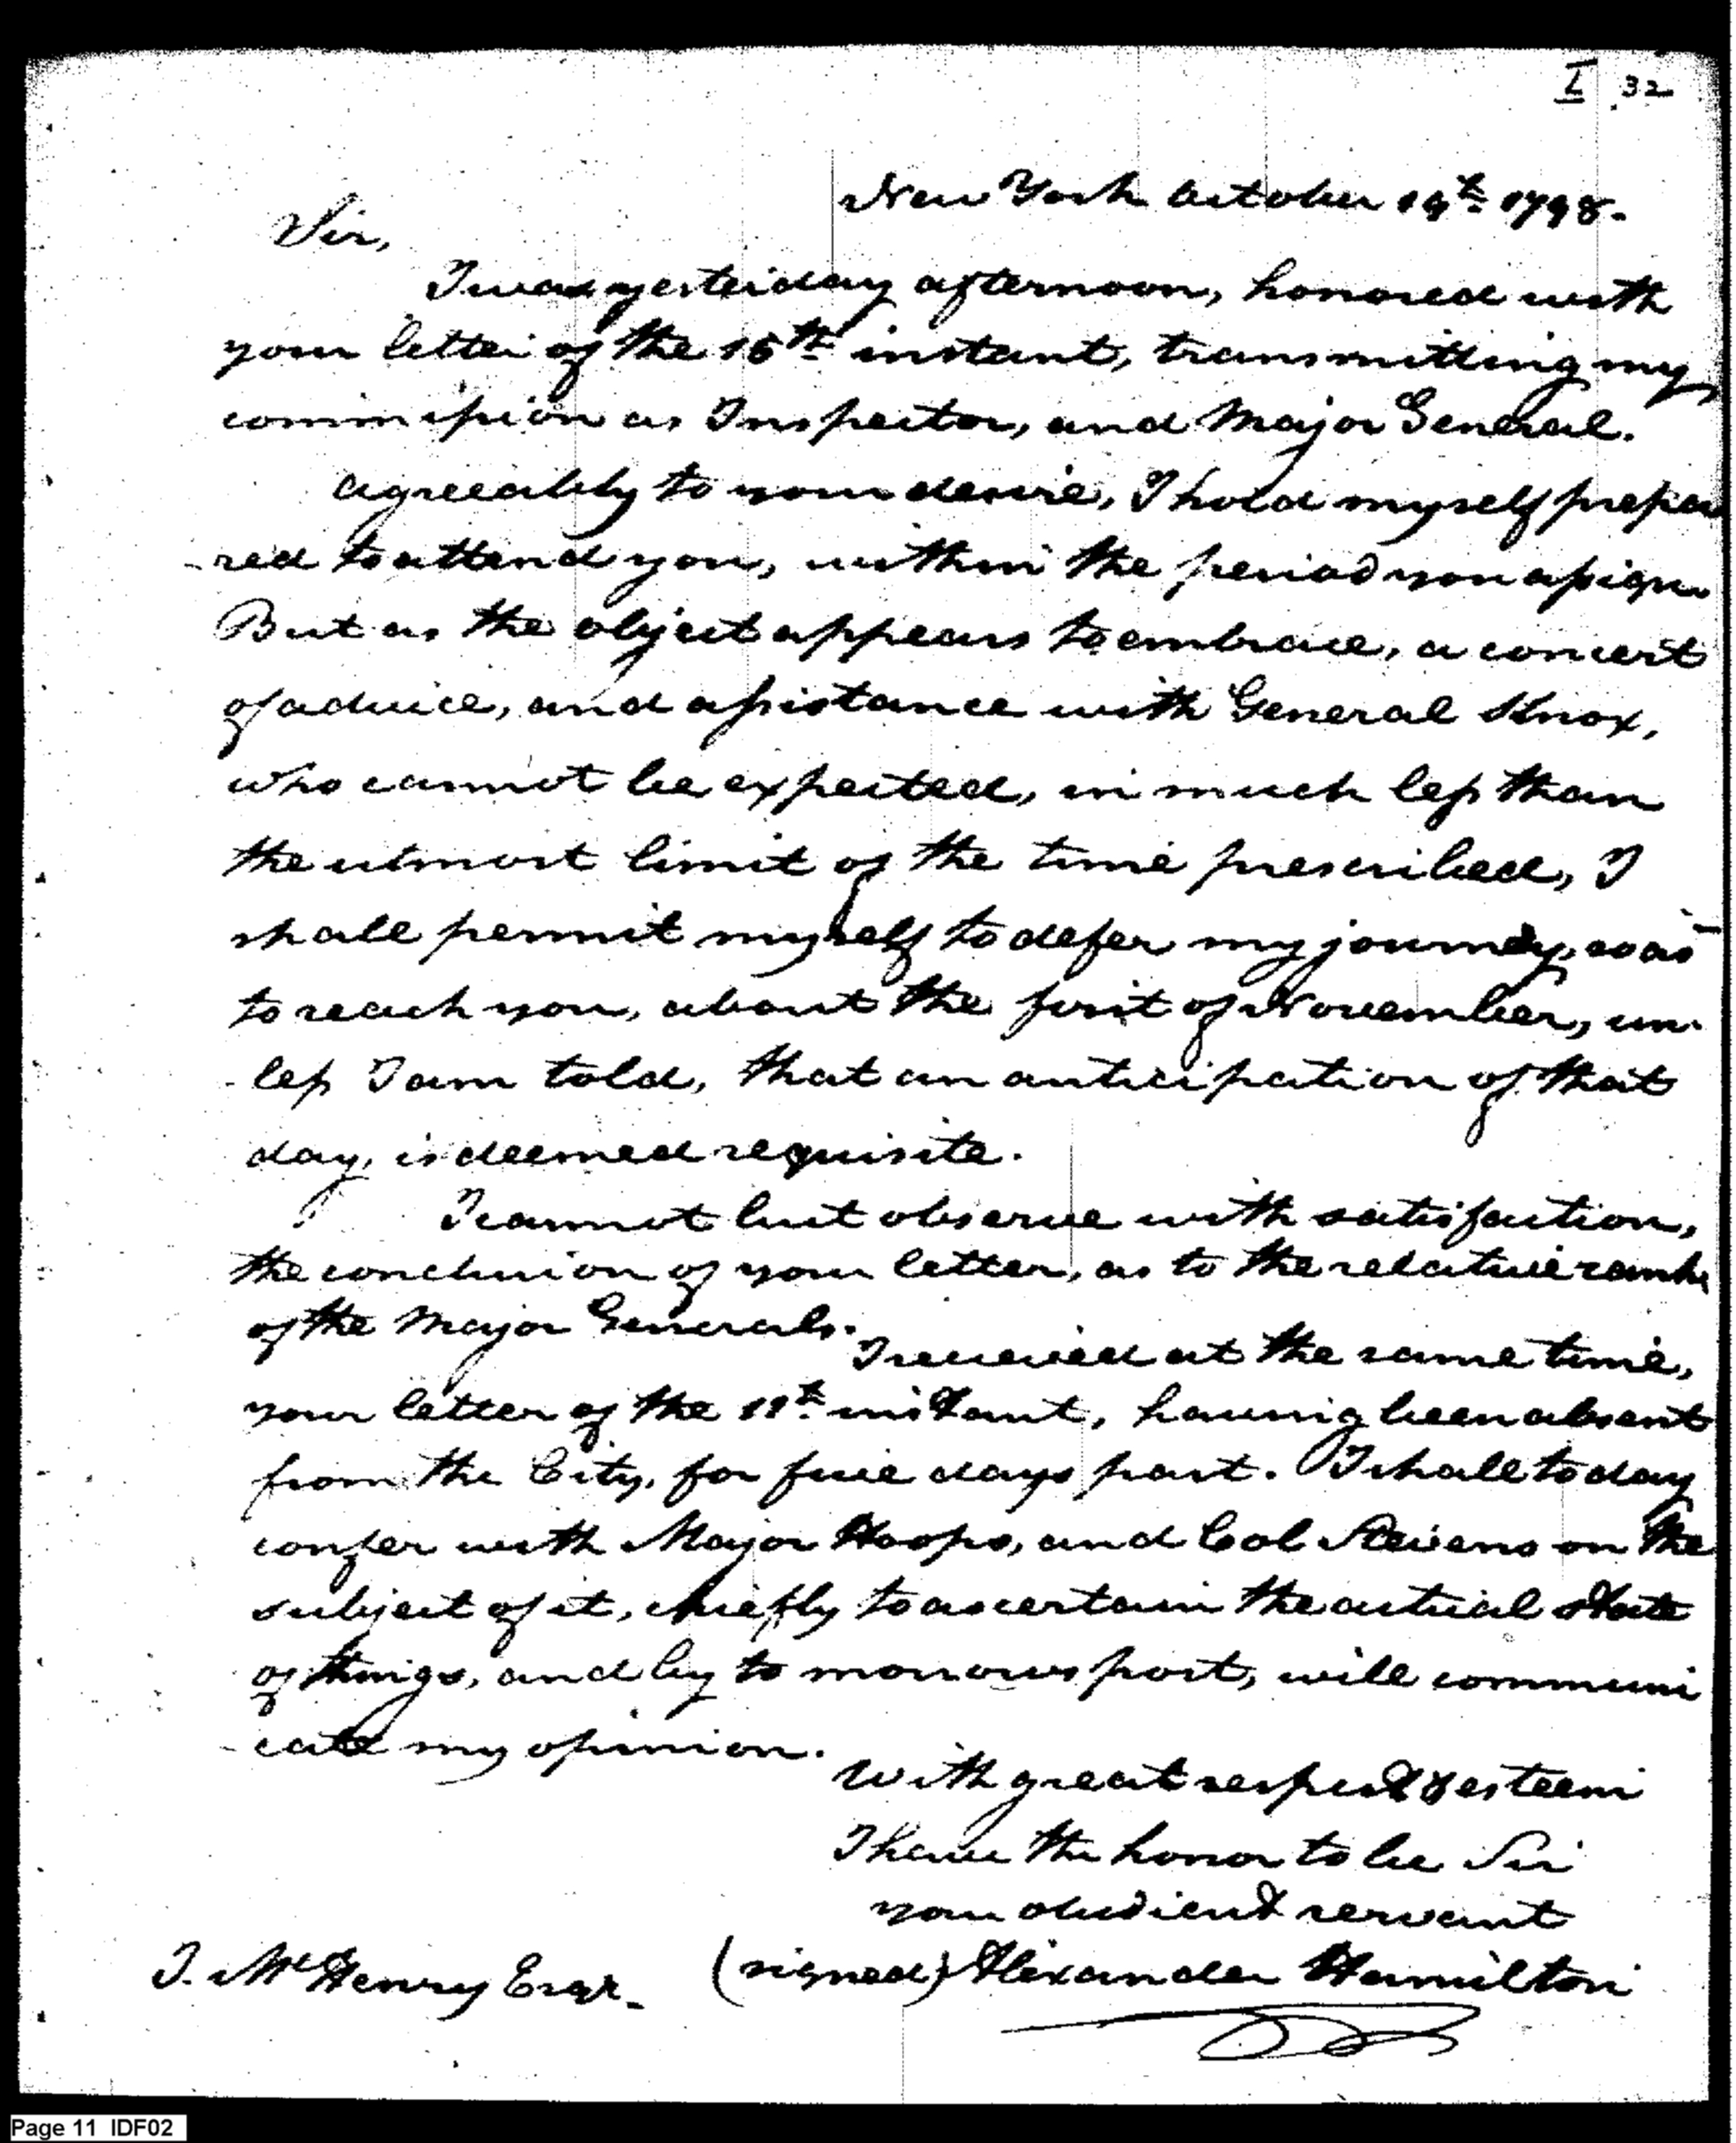 I 32
New York October 19th 1798.
Sir,
I was yesterday afternoon, honored with
your letter of the 15th instant, transmitting my
commission as Inspector, and Major General.
agreeably to your desire, I hold myself prepa
-red to attend you, within the period you assign.
But as the object appears to embrace, a concert
of advice, and assistance with General Knox,
who cannot be expected, in much less than
the utmost limit of the time prescribed, I
shall permit myself to defer my journey, so as
to reach you, about the first of November, un-
-less I am told, that an anticipation of that
day, is deemed requisite.
I cannot but observe with satisfaction,
the conclusion of your letter, as to the relative rank
of the Major Generals.
I received at the same time,
your letter of the 11th instant, having been absent
from the City, for five days past. I shall to day
confer with Major Hoops, and Col Stevens on the
subject of it, chiefly to ascertain the actual state
of things, and by to morrows post, will communi
-cate my opinion.
With great respect & esteem
I have the honor to be Sir
your obedient servant
(signed) Alexander Hamilton
J. McHenry Esqr.
Page 11 IDF02